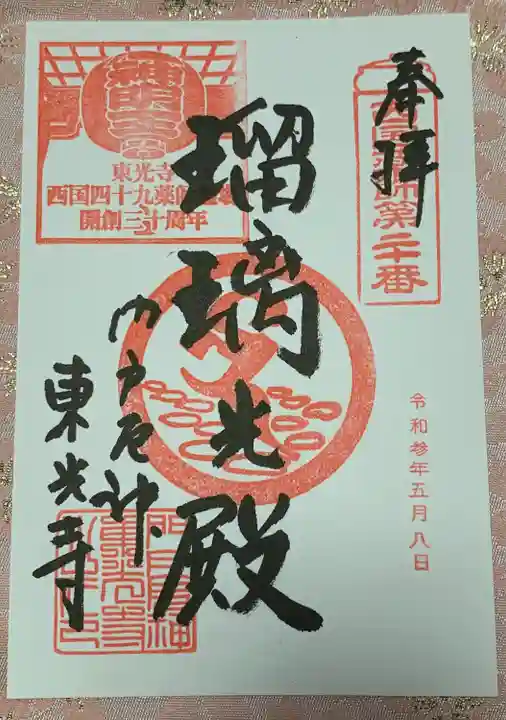 奉拝
西国薬師第二十番
令和参年五月八日
瑠璃光殿
門戸厄神
東光寺
東光寺
西国四十九薬師霊場
開創三十周年